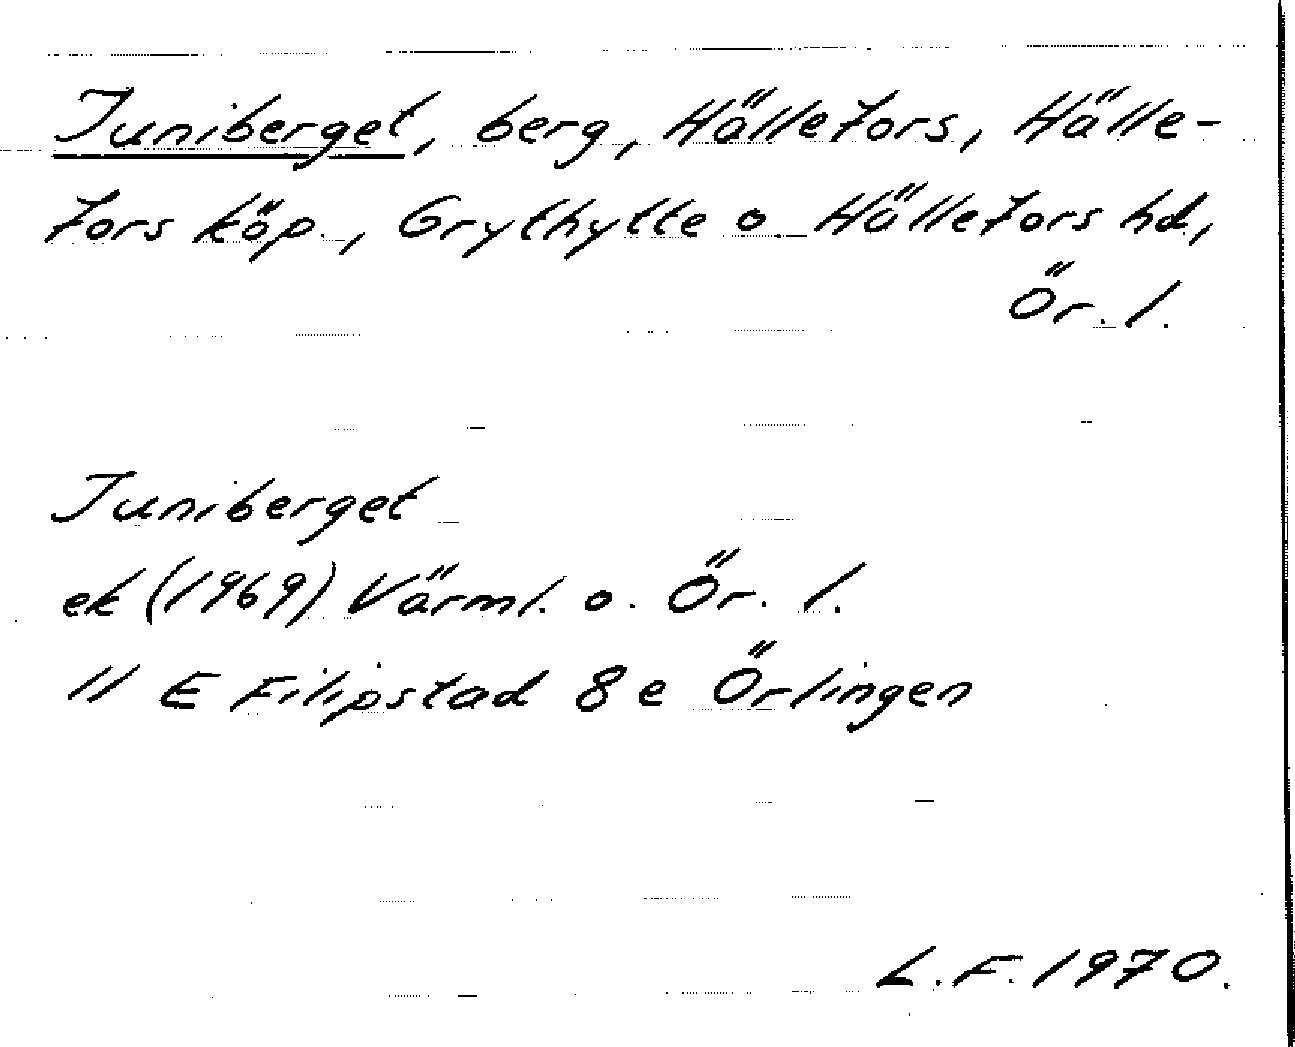 Juniberget, berg, Hällefors, Hälle-
fors köp., Grythytte o Hällefors hd,
Ör. l.
Juniberget
ek (1969) Värml. o. Ör. l.
11 E Filipstad 8 e Örlingen
L.F. 1970.